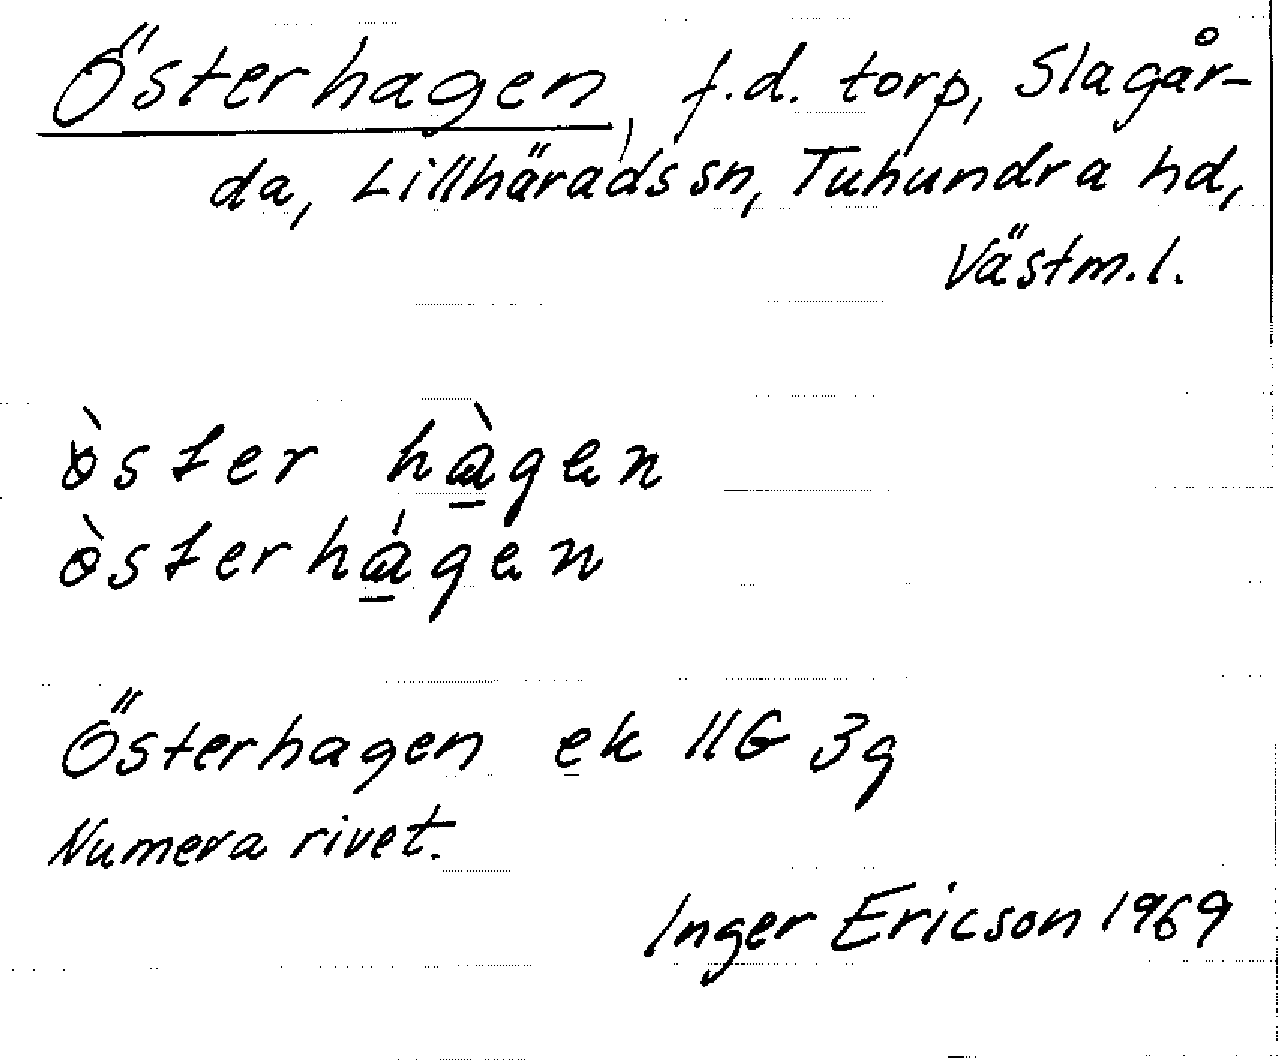 Österhagen, f.d. torp, Slagår-
da, Lillhärads sn, Tuhundra hd,
Västm.l.
ö̀ster hàgen
ö̀sterhágen
Österhagen ek 11G 3g
Numera rivet.
Inger Ericson 1969